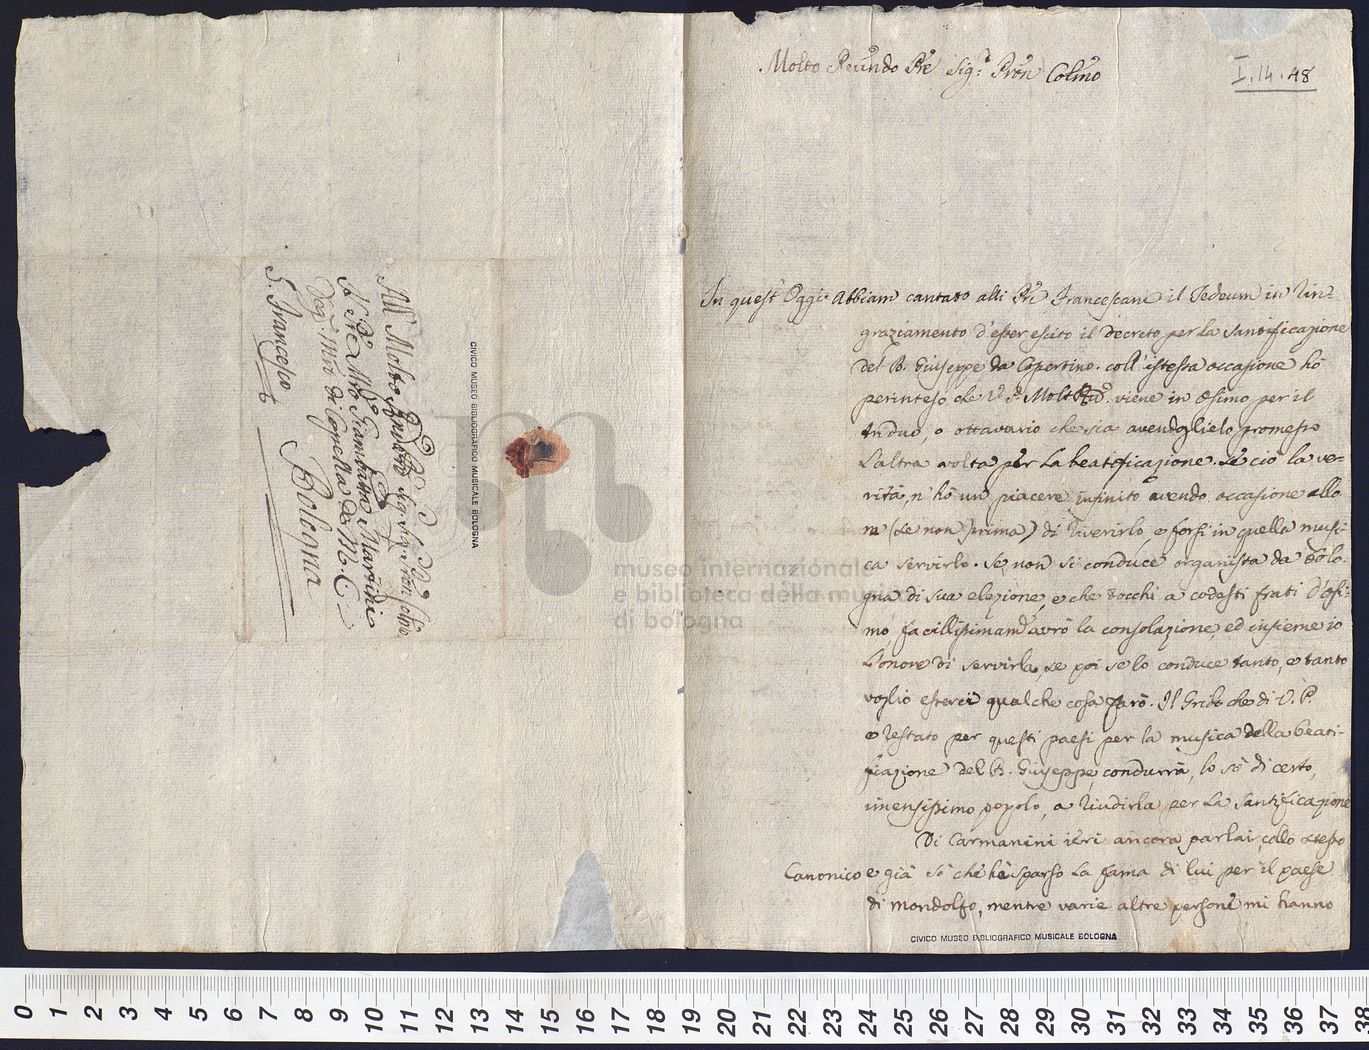 All' Molto Revdo Pre Sigr Pron Colmo
Il Pre Mro Giambatta Martini
Mro di Capella de M. C.
S. Francesco
Bologna
CIVICO MUSEO BIBLIOGRAFICO MUSICALE BOLOGNA
museo internazionale
e biblioteca della musica
di bologna
I. 14. 48
Molto Reundo Pre Sigr Pron Colmo
In quest' Oggi Abbiam cantato alli Pri Francescani il Tedeum in rin-
graziamento d'esser escito il Decreto per la Santificazione
del B. Giuseppe da Copertino. coll' istessa occasione hò
perinteso che V. P. Molto viene in Osimo per il
Triduo, o ottavario che sia avendoglielo promesso
l'altra volta per la beatificazione. Di ciò la ve-
rità, n' hò un piacere infinito avendo occasione allo-
ra (se non prima) di riverirlo, e forsi in quella musi-
ca servirlo. Se non si conduce organista da Bolo-
gna di sua elezione, e che tocchi a codesti frati d'Osi-
mo, facillissimamte avrò la consolazione, ed insieme io
l'onore di servirla, se poi se lo conduce tanto, e tanto
voglio esserci qualche cosa farò. Il Grido che di V. P.
è restato per questi paesi per la musica della beati-
ficazione del B. Giuseppe condurrà, lo sò di certo,
imensissimo popolo, a riudirla per la Santificazione
Di Carmanini ieri ancora parlai collo stesso
Canonico e già sò che hà sparso la fama di lui per il paese
di mondolfo, mentre varie altre persone mi hanno
CIVICO MUSEO BIBLIOGRAFICO MUSICALE BOLOGNA
0 1 2 3 4 5 6 7 8 9 10 11 12 13 14 15 16 17 18 19 20 21 22 23 24 25 26 27 28 29 30 31 32 33 34 35 36 37 38